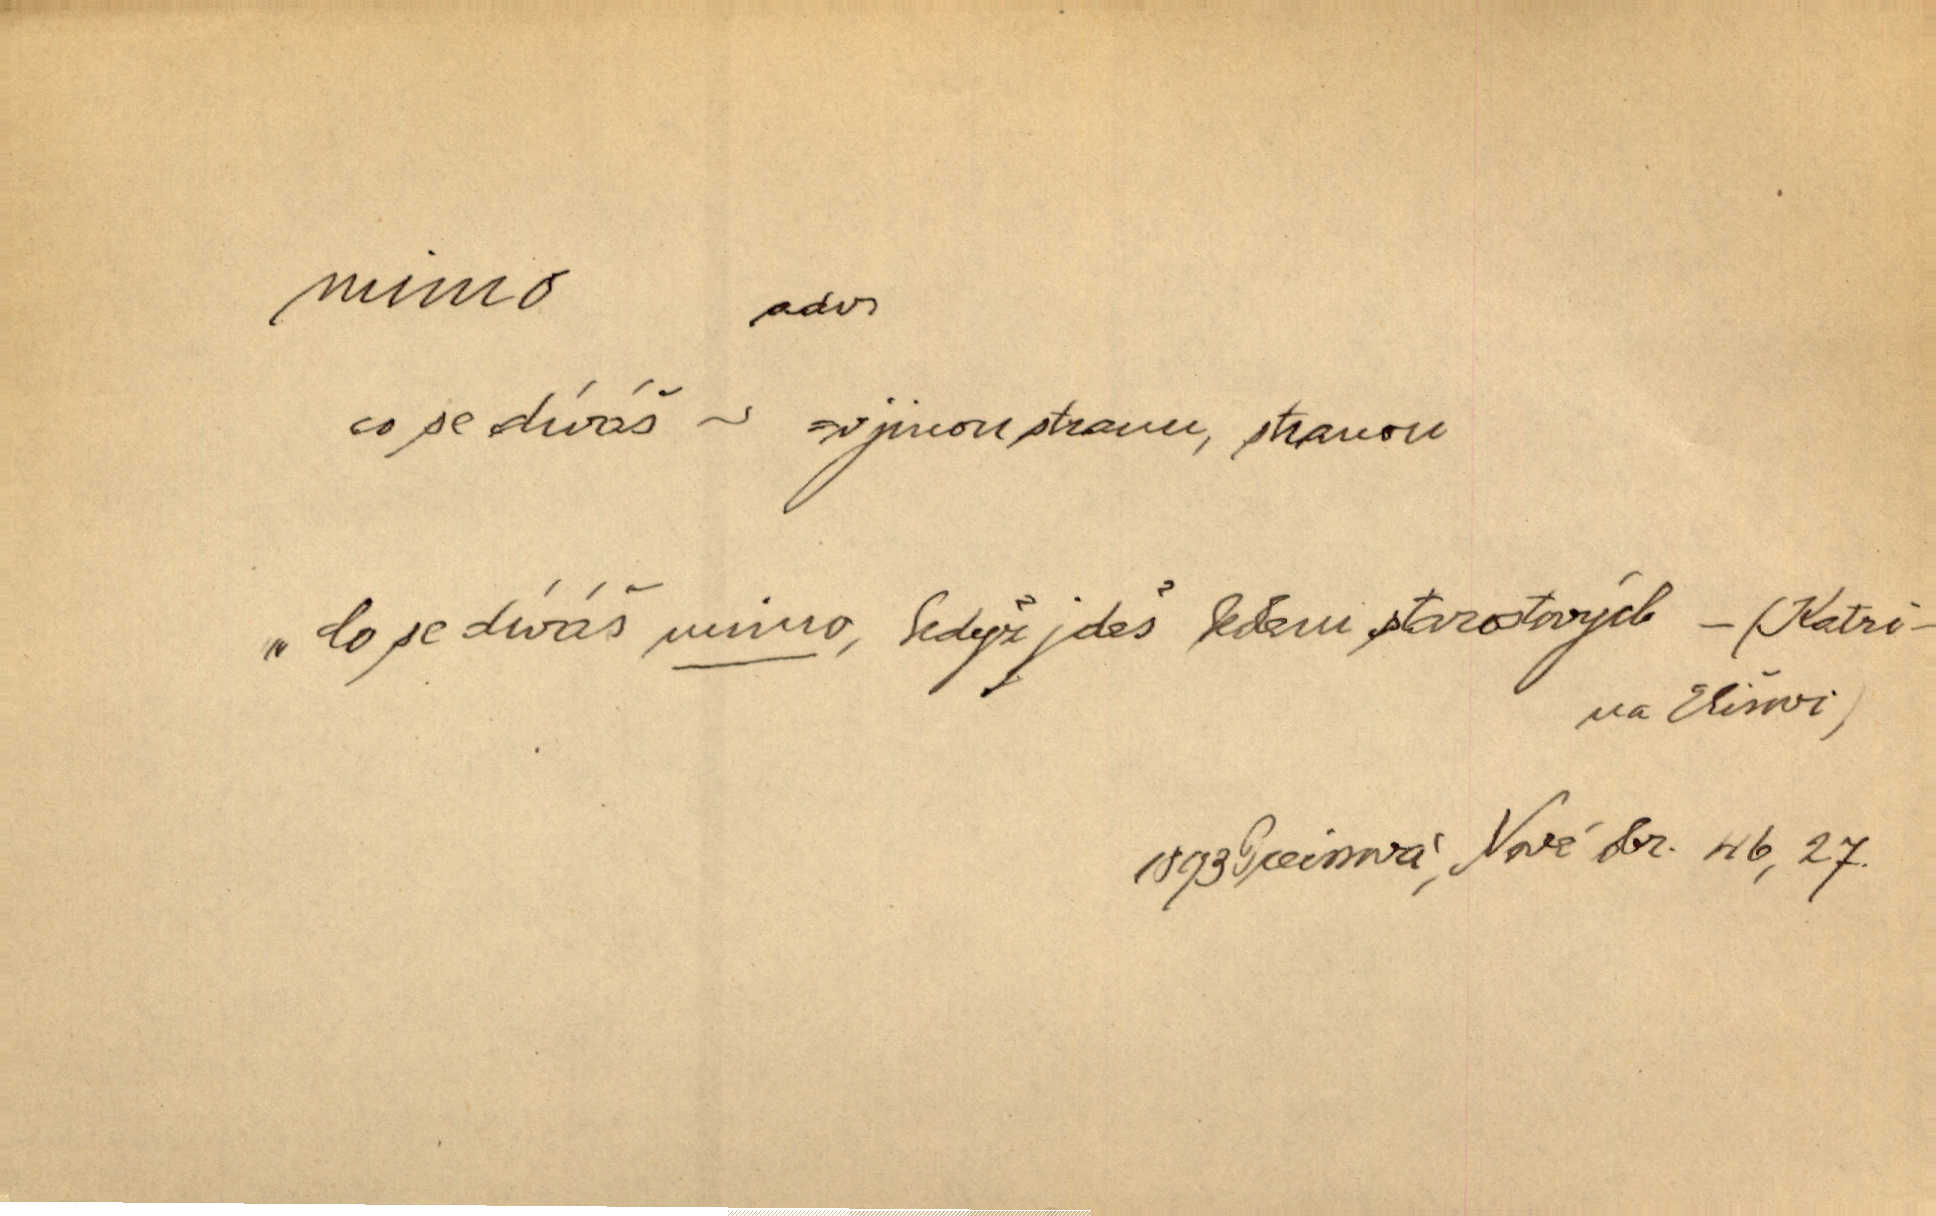 mimo adv
co se díváš ~ =v jinou stranu, stranou
„Co se díváš mimo, když jdeš kolem starostových – (Katri-
na Elišovi)
1893 Preissová, Nové obr. 46, 27.